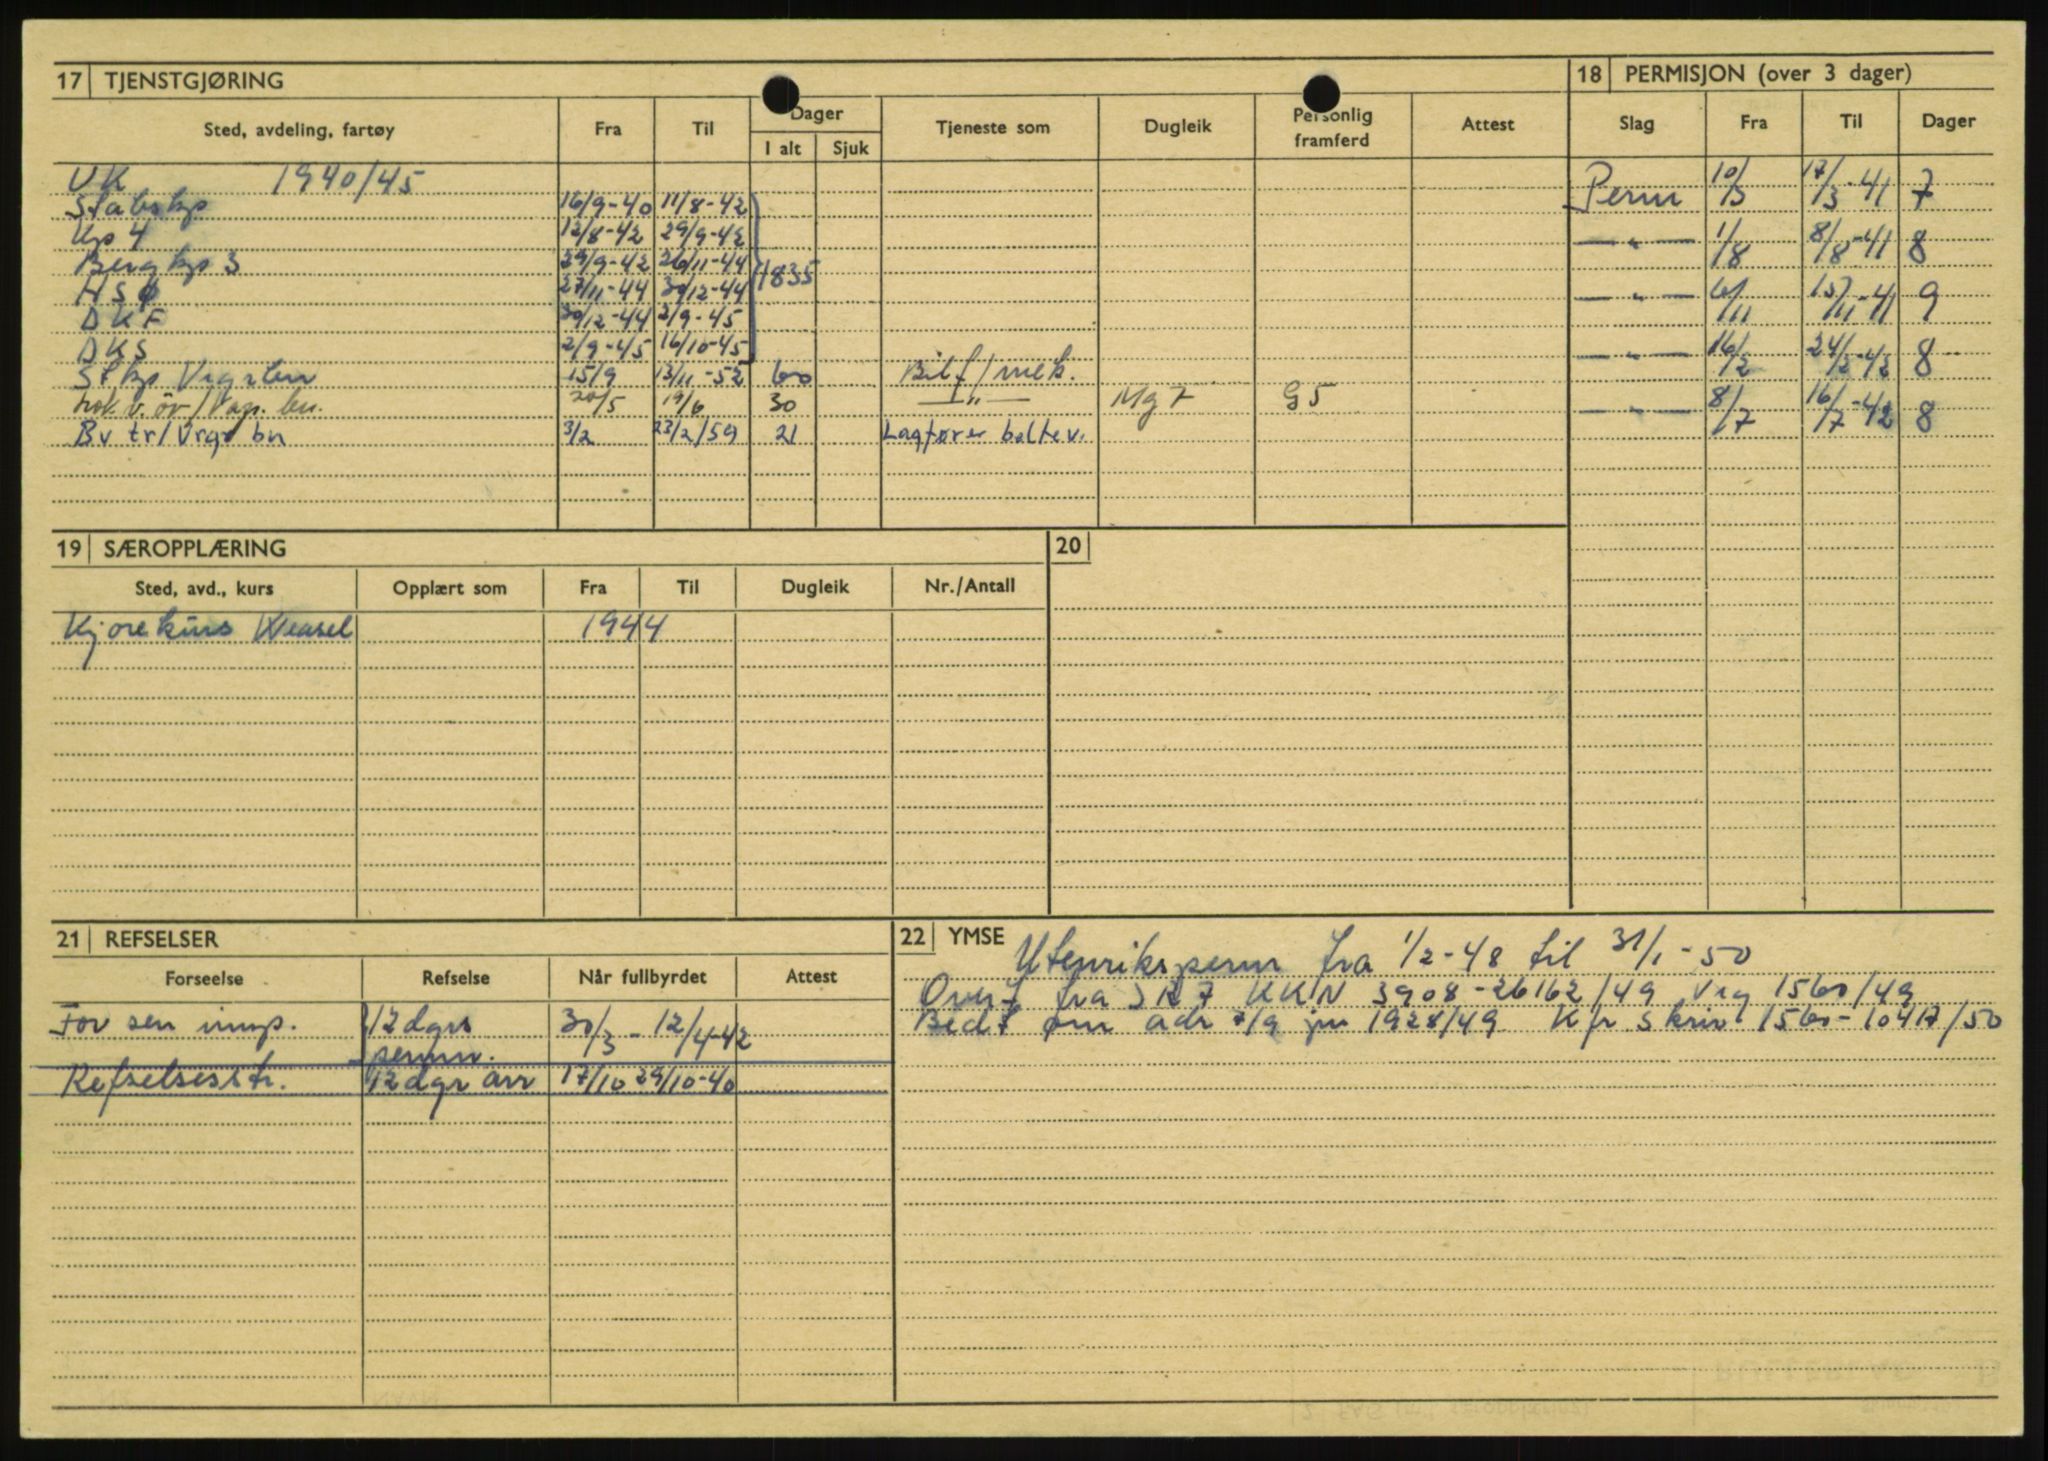 17 TJENSTGJØRING
Sted, avdeling, fartøy Fra Til Dager Tjeneste som Dugleik Personlig framferd Attest
I alt Sjuk
UK 1940/45
Stabskp 16/9-40 11/8-42
Kp 4 12/8-42 29/9-42
Bergkp 3 29/9-42 26/11-44
HSØ 27/11-44 30/12-44 1835
DKF 30/12-44 2/9-45
DKS 2/9-45 16/10-45
Stkp Vrgrbn 15/9 13/11-52 60 Bilf/mek.
v. öv/ 20/5 19/6 30 —„— Mg 7 G 5
Bv tr/Vrgr bn 3/2 23/2/59 21 Lagfører beltev.
18 PERMISJON (over 3 dager)
Slag Fra Til Dager
Perm 10/3 17/3-41 7
—„— 1/8 8/8-41 8
—„— 6/11 15/11-41 9
—„— 16/2 24/2-42 8
—„— 8/7 16/7-42 8
19 SÆROPPLÆRING
Sted, avd., kurs Opplært som Fra Til Dugleik Nr./Antall
Kjørekurs Weasel 1944
20
21 REFSELSER
Forseelse Refselse Når fullbyrdet Attest
For sen innp. 12 dgrs permn. 30/3-12/4-42
Refselsesstr. 12 dgr arr 17/10 29/10-40
22 YMSE
Utenriksperm fra 1/2-48 til 31/1-50
Overf fra IR 7 KKN 3908-26162/49 Vrg 1560/49
Bedt om adr 7/9 jnr 1928/49 K fr skriv 1560-10417/50